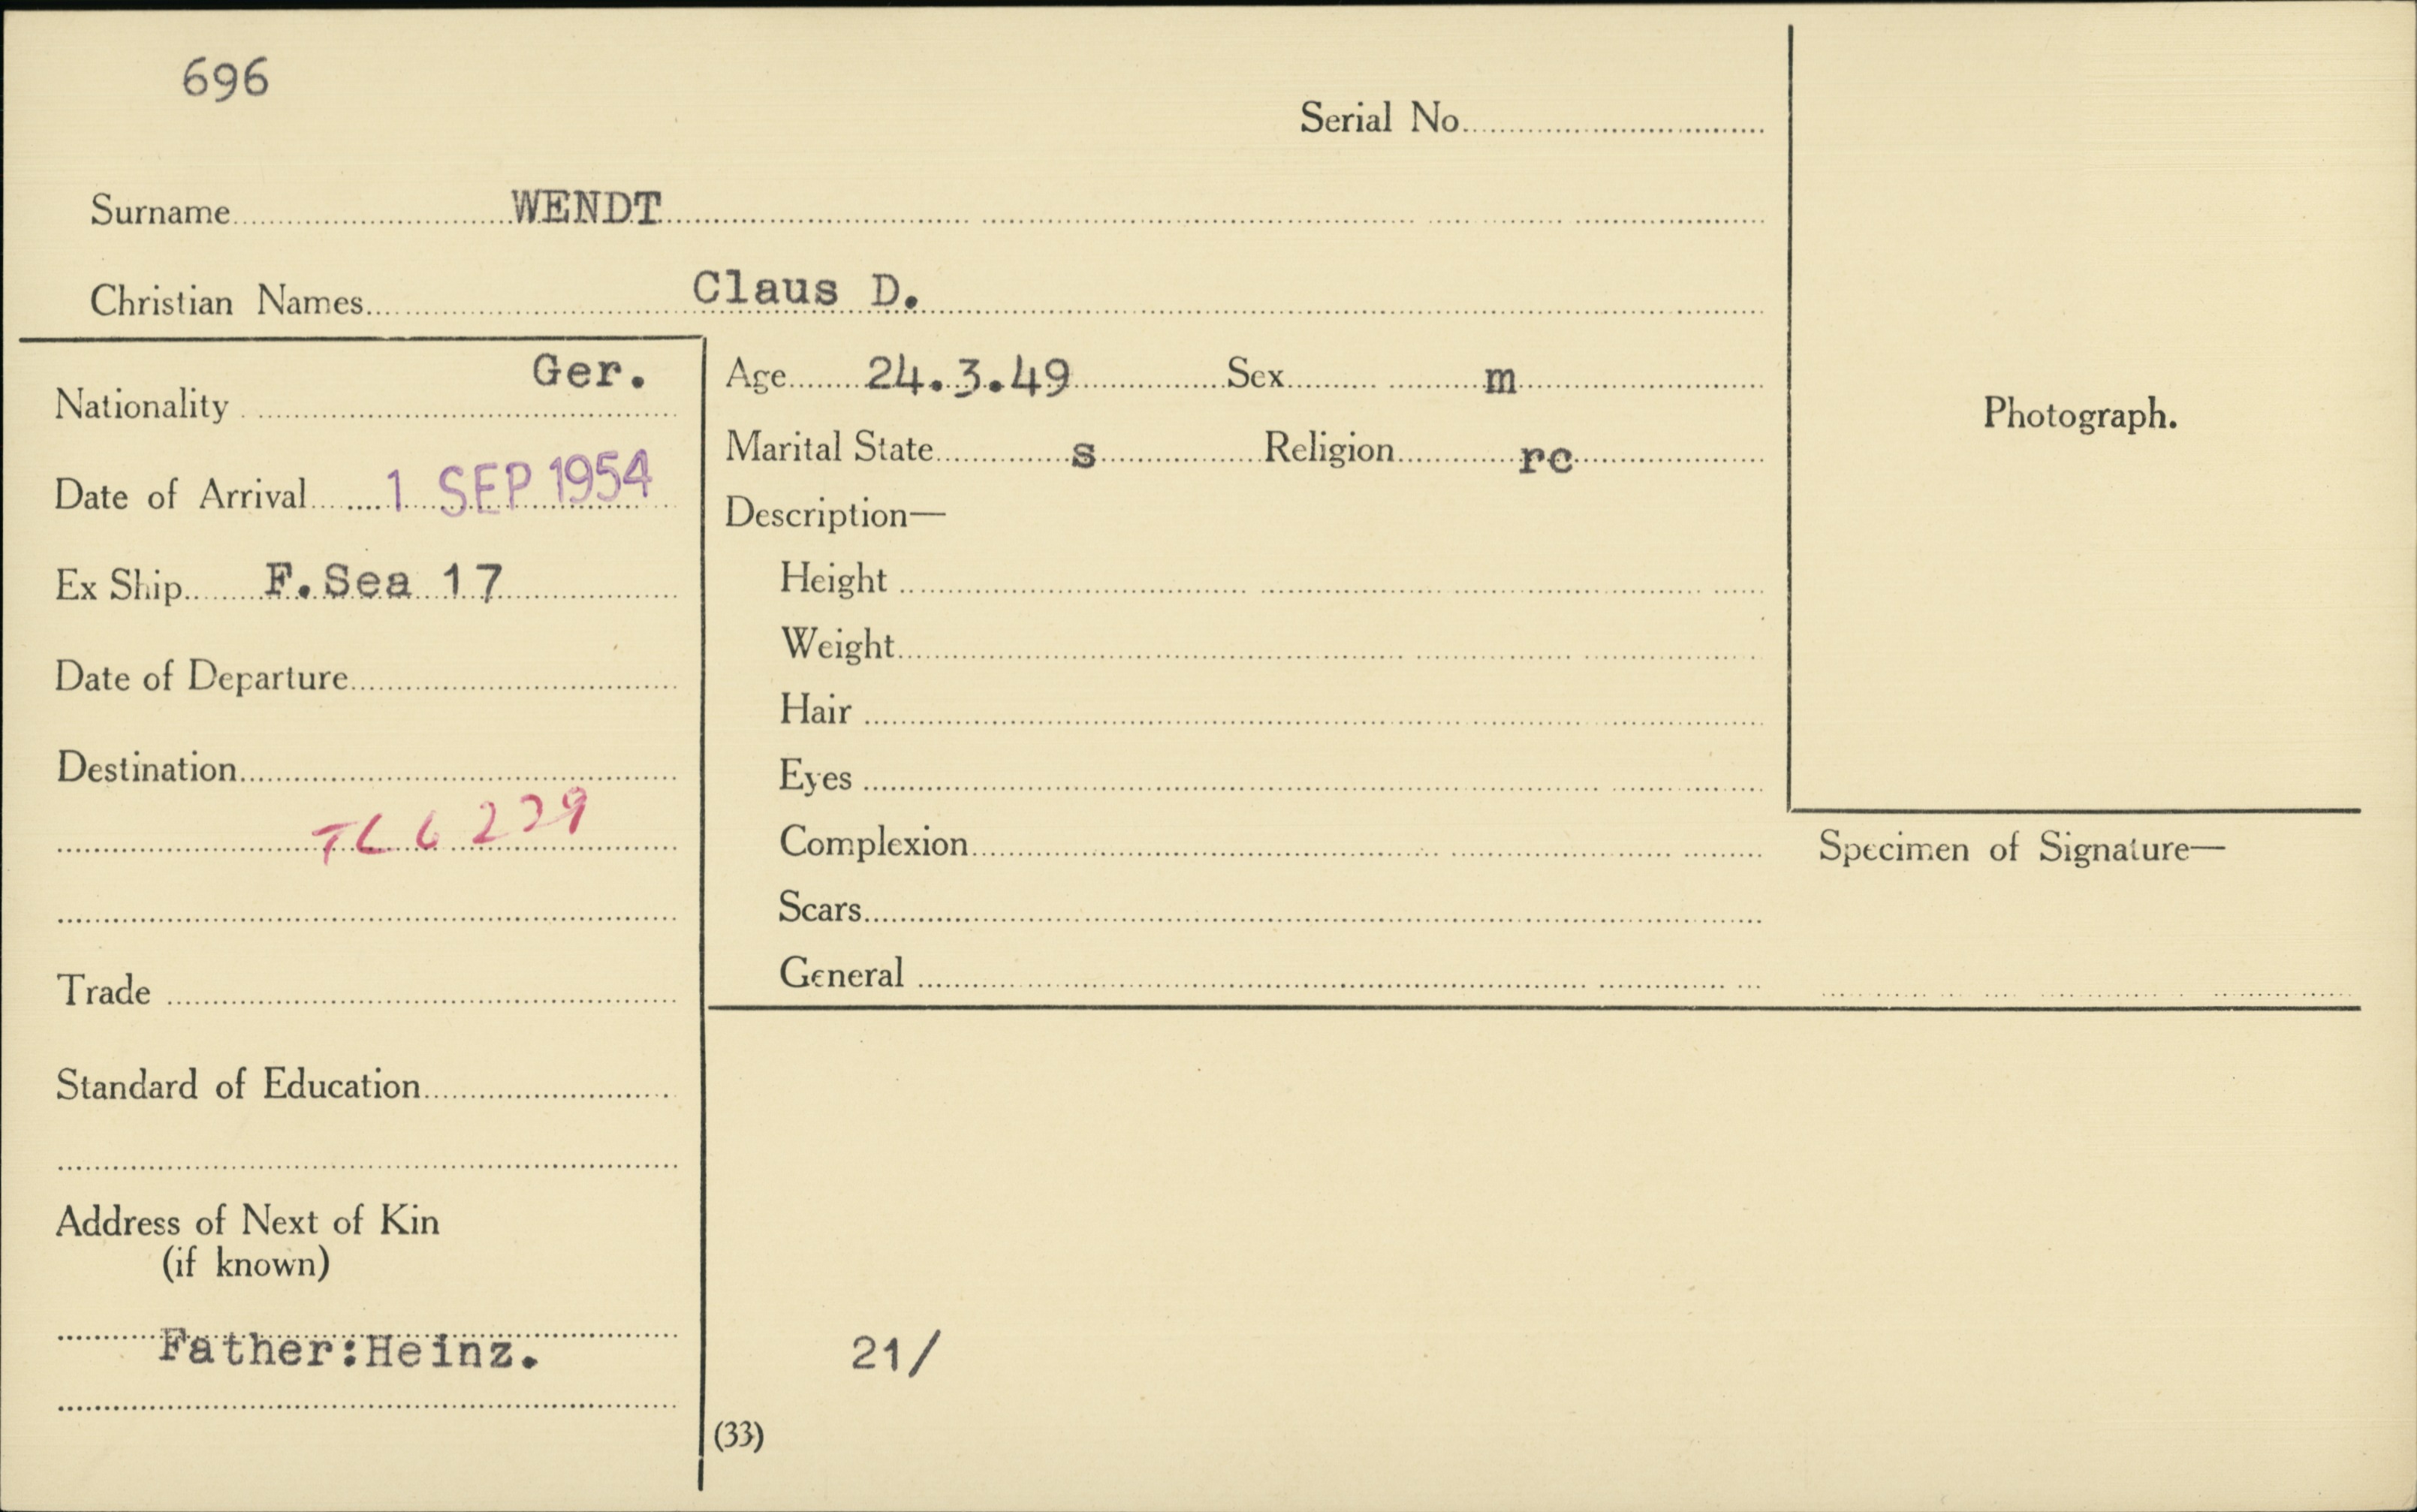 696
Serial No.
Surname WENDT
Christian Names Claus D.
Nationality Ger.
Date of Arrival 1 SEP 1954
Ex Ship F.Sea 17
Date of Departure
Destination
Trade
Standard of Education
Address of Next of Kin
(if known)
Father:Heinz.
Age 24.3.49 Sex m
Marital State s Religion rc
Description—
Height
Weight
Hair
Eyes
Complexion
Scars
General
Photograph.
Specimen of Signature—
21/
(33)